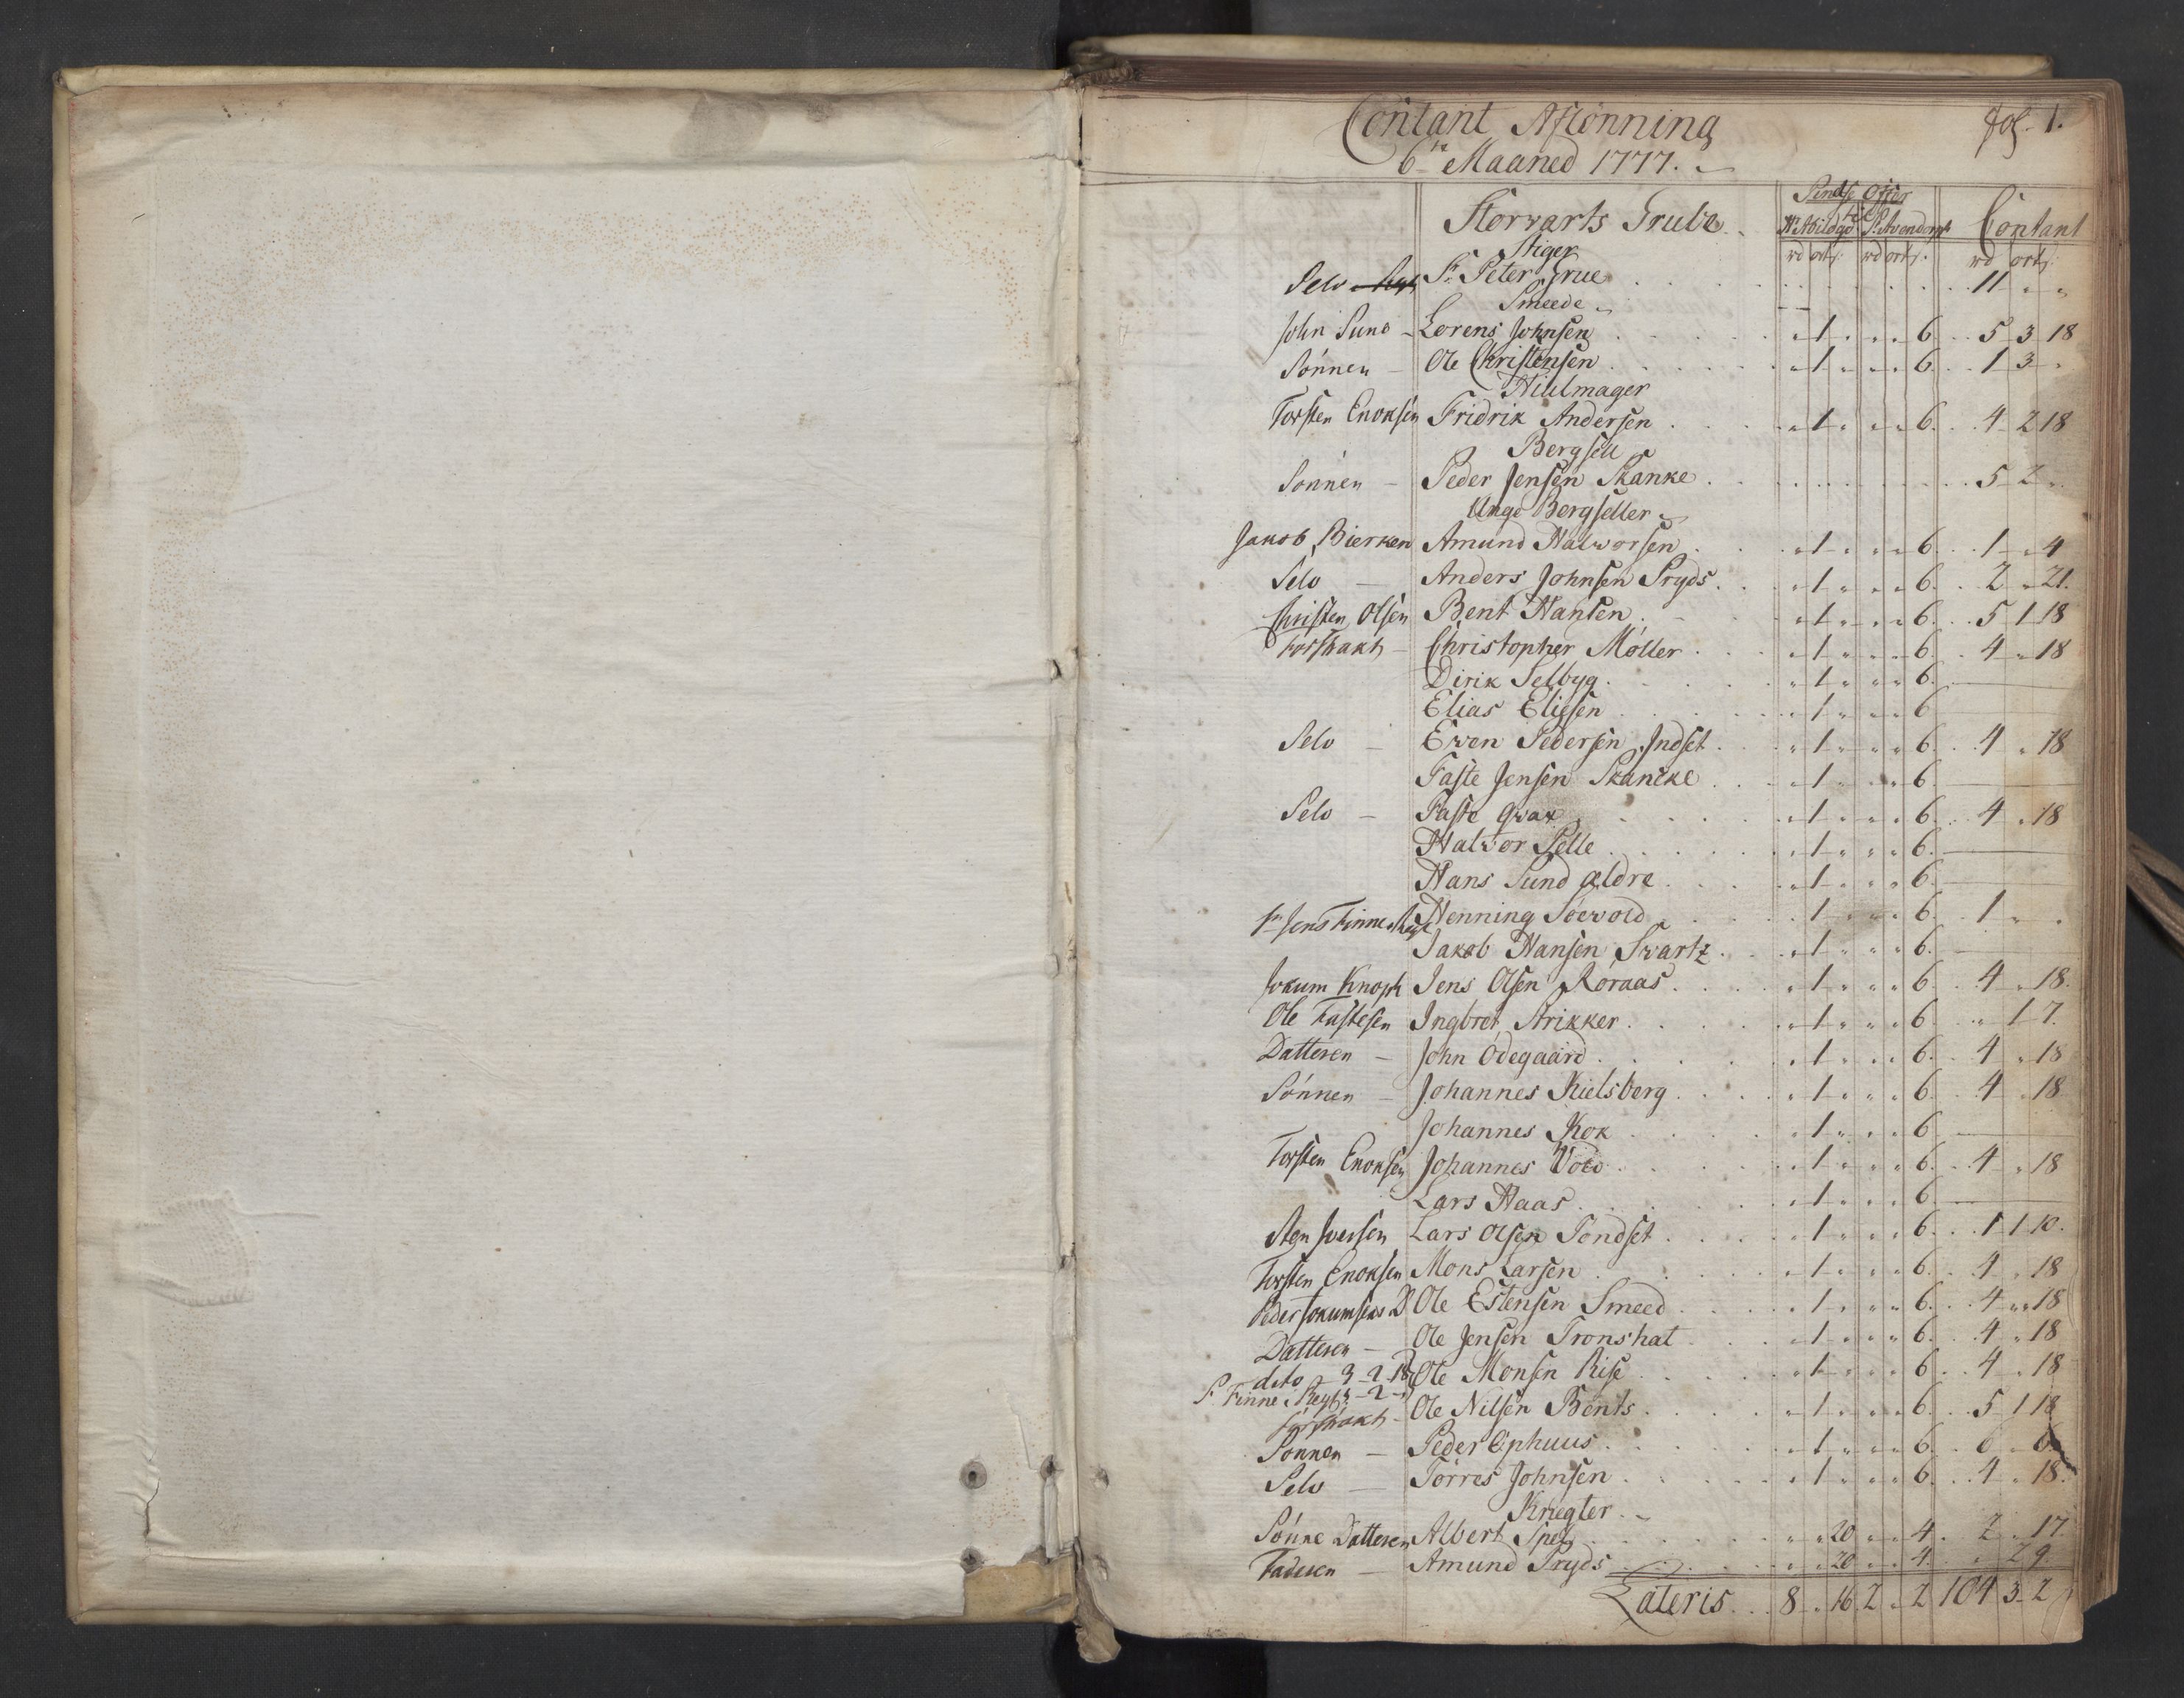 Contant Aflønning fol. 1.
6te Maaned 1777.
Storvarts Grube Pendse Ofter til Contant
Hr Abildgd P. Avendorph
rd ort s. rd ort s. rd ort s.
Stiger
Selv Sr Peter Grue 11 " "
Smeede
John Sund - Lorens Johnsen " 1 " " " 6 5 3 18
Sønnen - Ole Christensen " 1 " " " 6 1 3 "
Hiulmager
Torsten Enoksen Fridrik Andersen " 1 " " " 6 4 2 18
Bergsell
Sønnen - Peder Jensen Skanke 5 2 "
Unge Bergseller
Jakob Bierken Amund Halvorsen " 1 " " " 6 1 " 4
Selv - Anders Johnsen Pryds " 1 " " " 6 2 " 21
Christen Olsen Bent Hansen " 1 " " " 6 5 1 18
forstrakt - Christopher Møller " 1 " " " 6 4 " 18
Dirik Selbyg " 1 " " " 6
Elias Eliesen " 1 " " " 6
Selv - Even Pedersen Indset " 1 " " " 6 4 " 18
Faste Jensen Skancke " 1 " " " 6
Selv - Faste Qvar " 1 " " " 6 4 " 18
Halvor Pelle " 1 " " " 6
Hans Sund ældre " 1 " " " 6
Sr Jens Finne Henning Søevold " 1 " " " 6 1 " "
Jakob Hansen Svartz " 1 " " " 6
Jokum Knoph Jens Olsen Røraas " 1 " " " 6 4 " 18
Ole Fastesen Ingbret Strikker " 1 " " " 6 " 1 7
Datteren - John Ødegaard " 1 " " " 6 4 " 18
Sønnen - Johannes Kielsberg " 1 " " " 6 4 " 18
Johannes Kok " 1 " " " 6
Torsten Enoksen Johannes Vold " 1 " " " 6 4 " 18
Lars Haas " 1 " " " 6
Sten Iversen Lars Olsen Tøndset " 1 " " " 6 1 1 10
Torsten Enoksen Mons Larsen " 1 " " " 6 4 " 18
Peder Jokumsens D. Ole Estensen Smeed " 1 " " " 6 4 " 18
Datteren - Ole Jensen Tronshat " 1 " " " 6 4 " 18
dito 3-2-18 Ole Monsen Rise " 1 " " " 6 4 " 18
S. Finne Regt. - 2 -
forstrakt - Ole Nilsen Bents " 1 " " " 6 5 1 18
Sønnen - Peder Ophuus " 1 " " " 6 6 " 6
Selv - Tørres Johnsen " 1 " " " 6 4 " 18
Knegter
Sønne Datteren Albert Spel " " 20 " " 4 2 " 17
Faderen - Amund Pryds " " 20 " " 4 " 2 9
Lateris 8 " 16 2 " 2 104 3 2